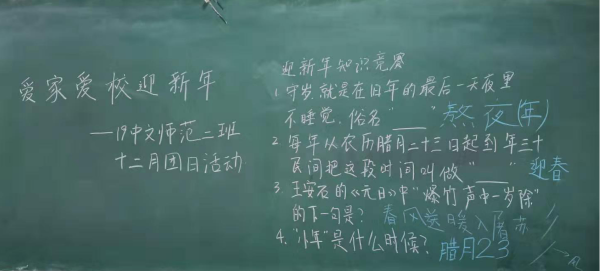 爱家爱校迎新年
——19中文师范二班
十二月团日活动
迎新年知识竞赛
1.守岁,就是在旧年的最后一天夜里
不睡觉,俗名“___” 熬夜(年)
2.每年从农历腊月二十三日起到年三十
民间把这段时间叫做“___” 迎春
3.王安石的《元日》中“爆竹声中一岁除”
的下一句是? 春风送暖入屠苏
4.“小年”是什么时候? 腊月23